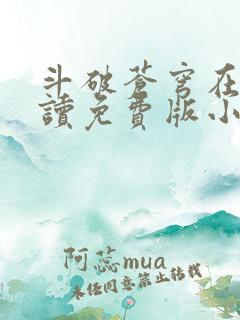 斗破蒼穹在
讀免費版小
阿蕊mua
未经同意禁止转载